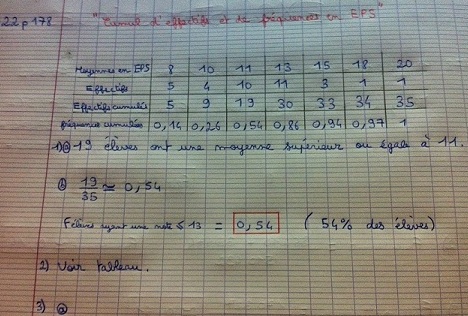 22 p 178 "Cumul d'effectifs et de fréquences en EPS"
Moyennes en EPS 8 10 11 13 15 18 20
Effectifs 5 4 10 11 3 1 1
Effectifs cumulés 5 9 19 30 33 34 35
fréquences cumulées 0,14 0,26 0,54 0,86 0,94 0,97 1
1) a) 19 élèves ont une moyenne supérieur ou égale à 11.
b) 19/35 ≃ 0,54
F élèves ayant une note ≤ 13 = 0,54 (54% des élèves)
2) Voir tableau.
3) a)